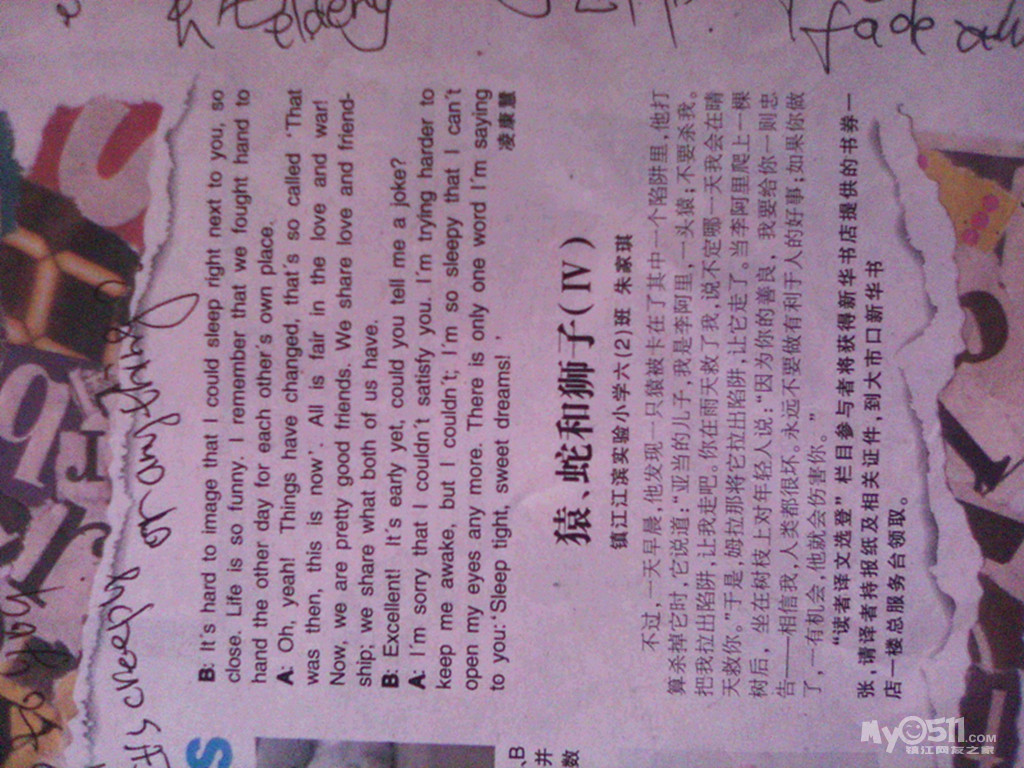 It's creepy or anything
B: It's hard to image that I could sleep right next to you, so
close. Life is so funny. I remember that we fought hand to
hand the other day for each other's own place.
A: Oh, yeah! Things have changed, that's so called 'That
was then, this is now'. All is fair in the love and war!
Now, we are pretty good friends. We share love and friend-
ship; we share what both of us have.
B: Excellent! It's early yet, could you tell me a joke?
A: I'm sorry that I couldn't satisfy you. I'm trying harder to
keep me awake, but I couldn't; I'm so sleepy that I can't
open my eyes any more. There is only one word I'm saying
to you:'Sleep tight, sweet dreams!'
凌康慧
猿、蛇和狮子(Ⅳ)
镇江江滨实验小学六(2)班 朱家琪
不过,一天早晨,他发现一只猿被卡在了其中一个陷阱里,他打
算杀掉它时,它说道:“亚当的儿子,我是李阿里,一头猿;不要杀我。
把我拉出陷阱,让我走吧。你在雨天救了我,说不定哪一天我会在晴
天救你。”于是,姆拉那将它拉出陷阱,让它走了。当李阿里爬上一棵
树后,坐在树枝上对年轻人说:“因为你的善良,我要给你一则忠
告——相信我,人类都很坏。永远不要做有利于人的好事;如果你做
了,一有机会,他就会伤害你。”
“读者译文选登”栏目参与者将获得新华书店提供的书券一
张,请译者持报纸及相关证件,到大市口新华书
店一楼总服务台领取。
fade
S
、B
并
数
My0511.com
镇江网友之家